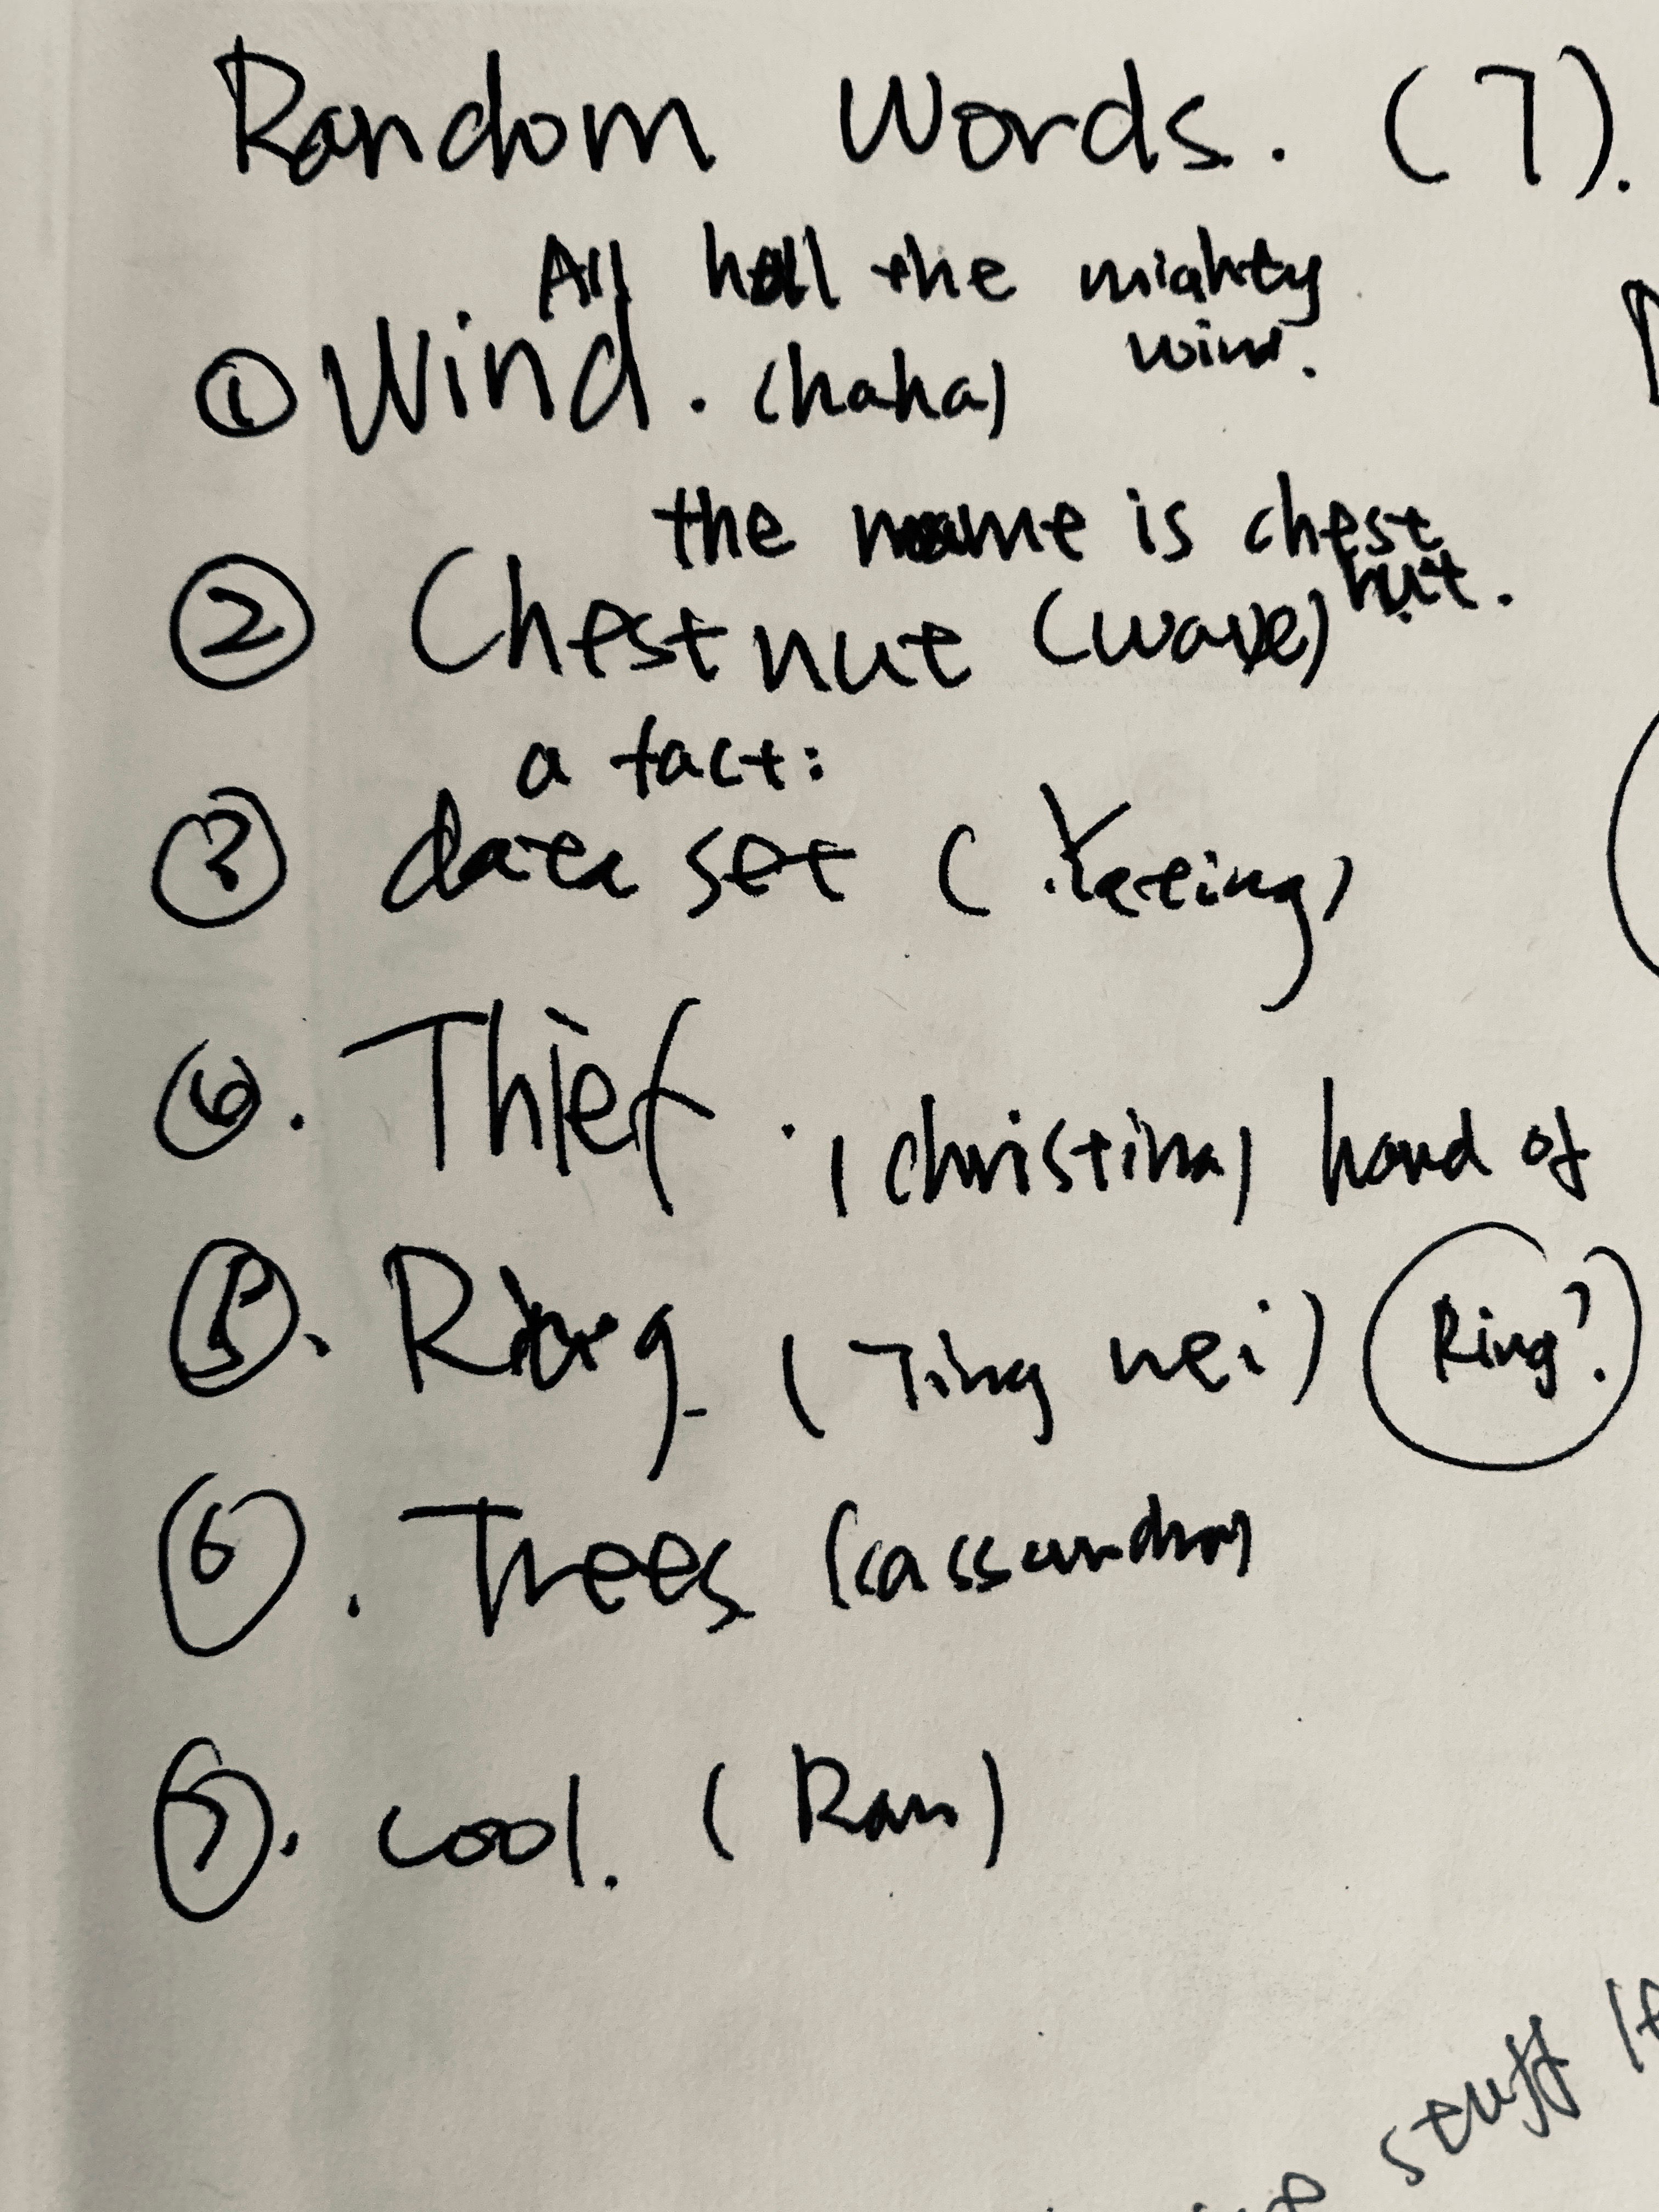 Random Words. (7).
All hall the mighty
wind.
① Wind. (haha)
the name is chest
nut.
② Chestnut (wave)
a fact:
③ data set (Yeeing)
④. Thief. (christina) hand of
⑤. Ring (Ting wei) Ring?
⑥. Trees (cassandra)
⑦. cool. (Ran)
stuff